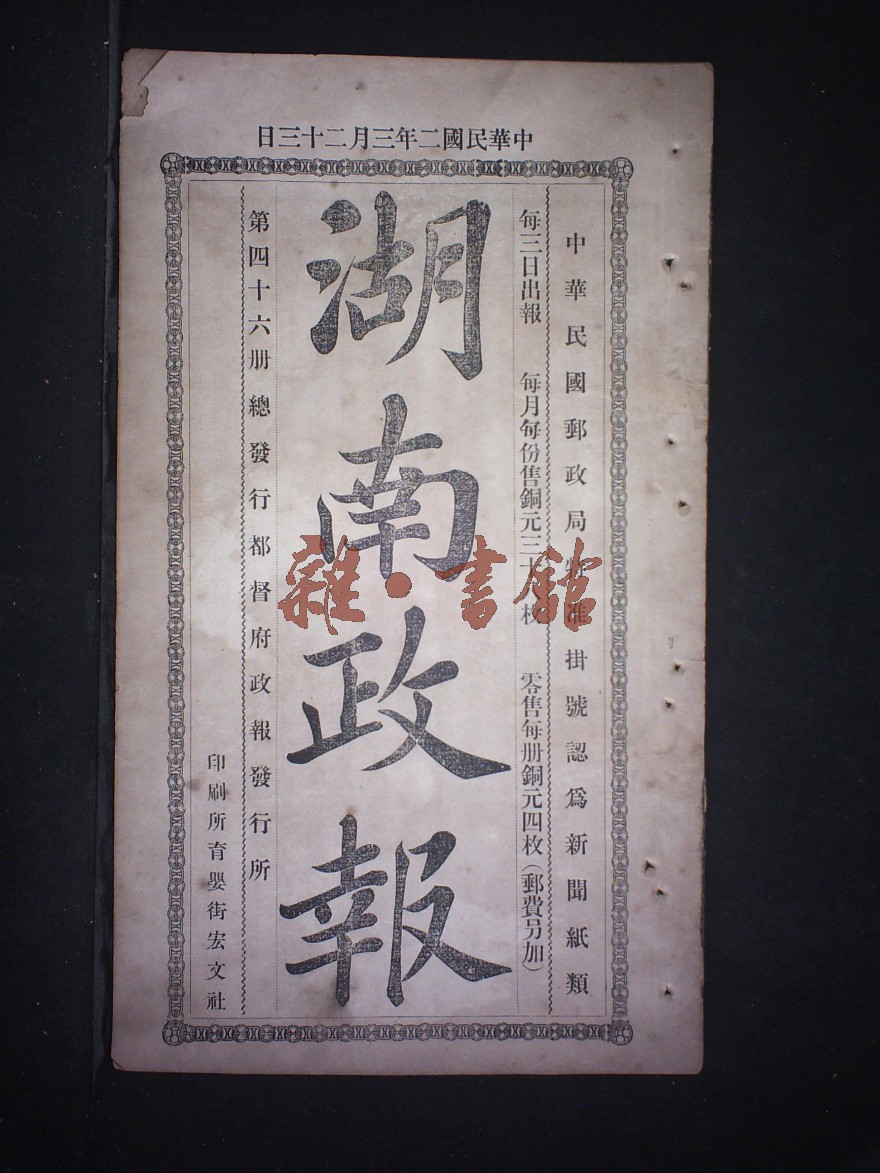 中華民國二年三月二十三日
中華民國郵政局特准掛號認爲新聞紙類
每三日出報 每月每份售銅元三十八枚 零售每册銅元四枚（郵費另加）
湖南政報
第四十六册總發行都督府政報發行所
印刷所育嬰街宏文社
雜·書館